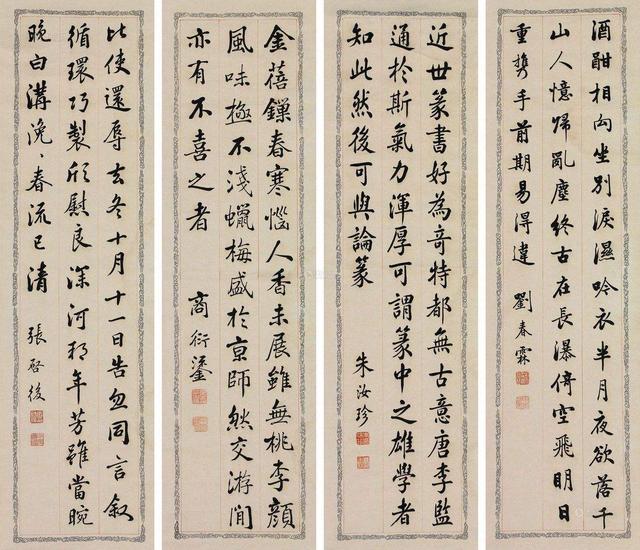 酒酣相向坐別淚濕吟衣半月夜欲落千
山人憶歸亂塵終古在長瀑倚空飛明日
重携手前期易得違 劉春霖
近世篆書好為奇特都無古意唐李監
通於斯氣力渾厚可謂篆中之雄學者
知此然後可與論篆 朱汝珍
金蓓鏁春寒惱人香未展雖無桃李顏
風味極不淺蠟梅盛於京師然交游間
亦有不喜之者 商衍鎏
比使還辱去冬十月十一日告忽同言叙
循環巧製欣慰良深河朔年芳雖當晼
晚白溝浼〻春流已清 張啓後